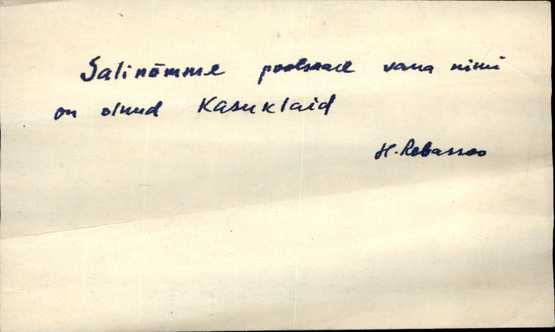 Salinõmme poolsaare vana nimi
on olnud Kasuklaid
H. Rebassoo